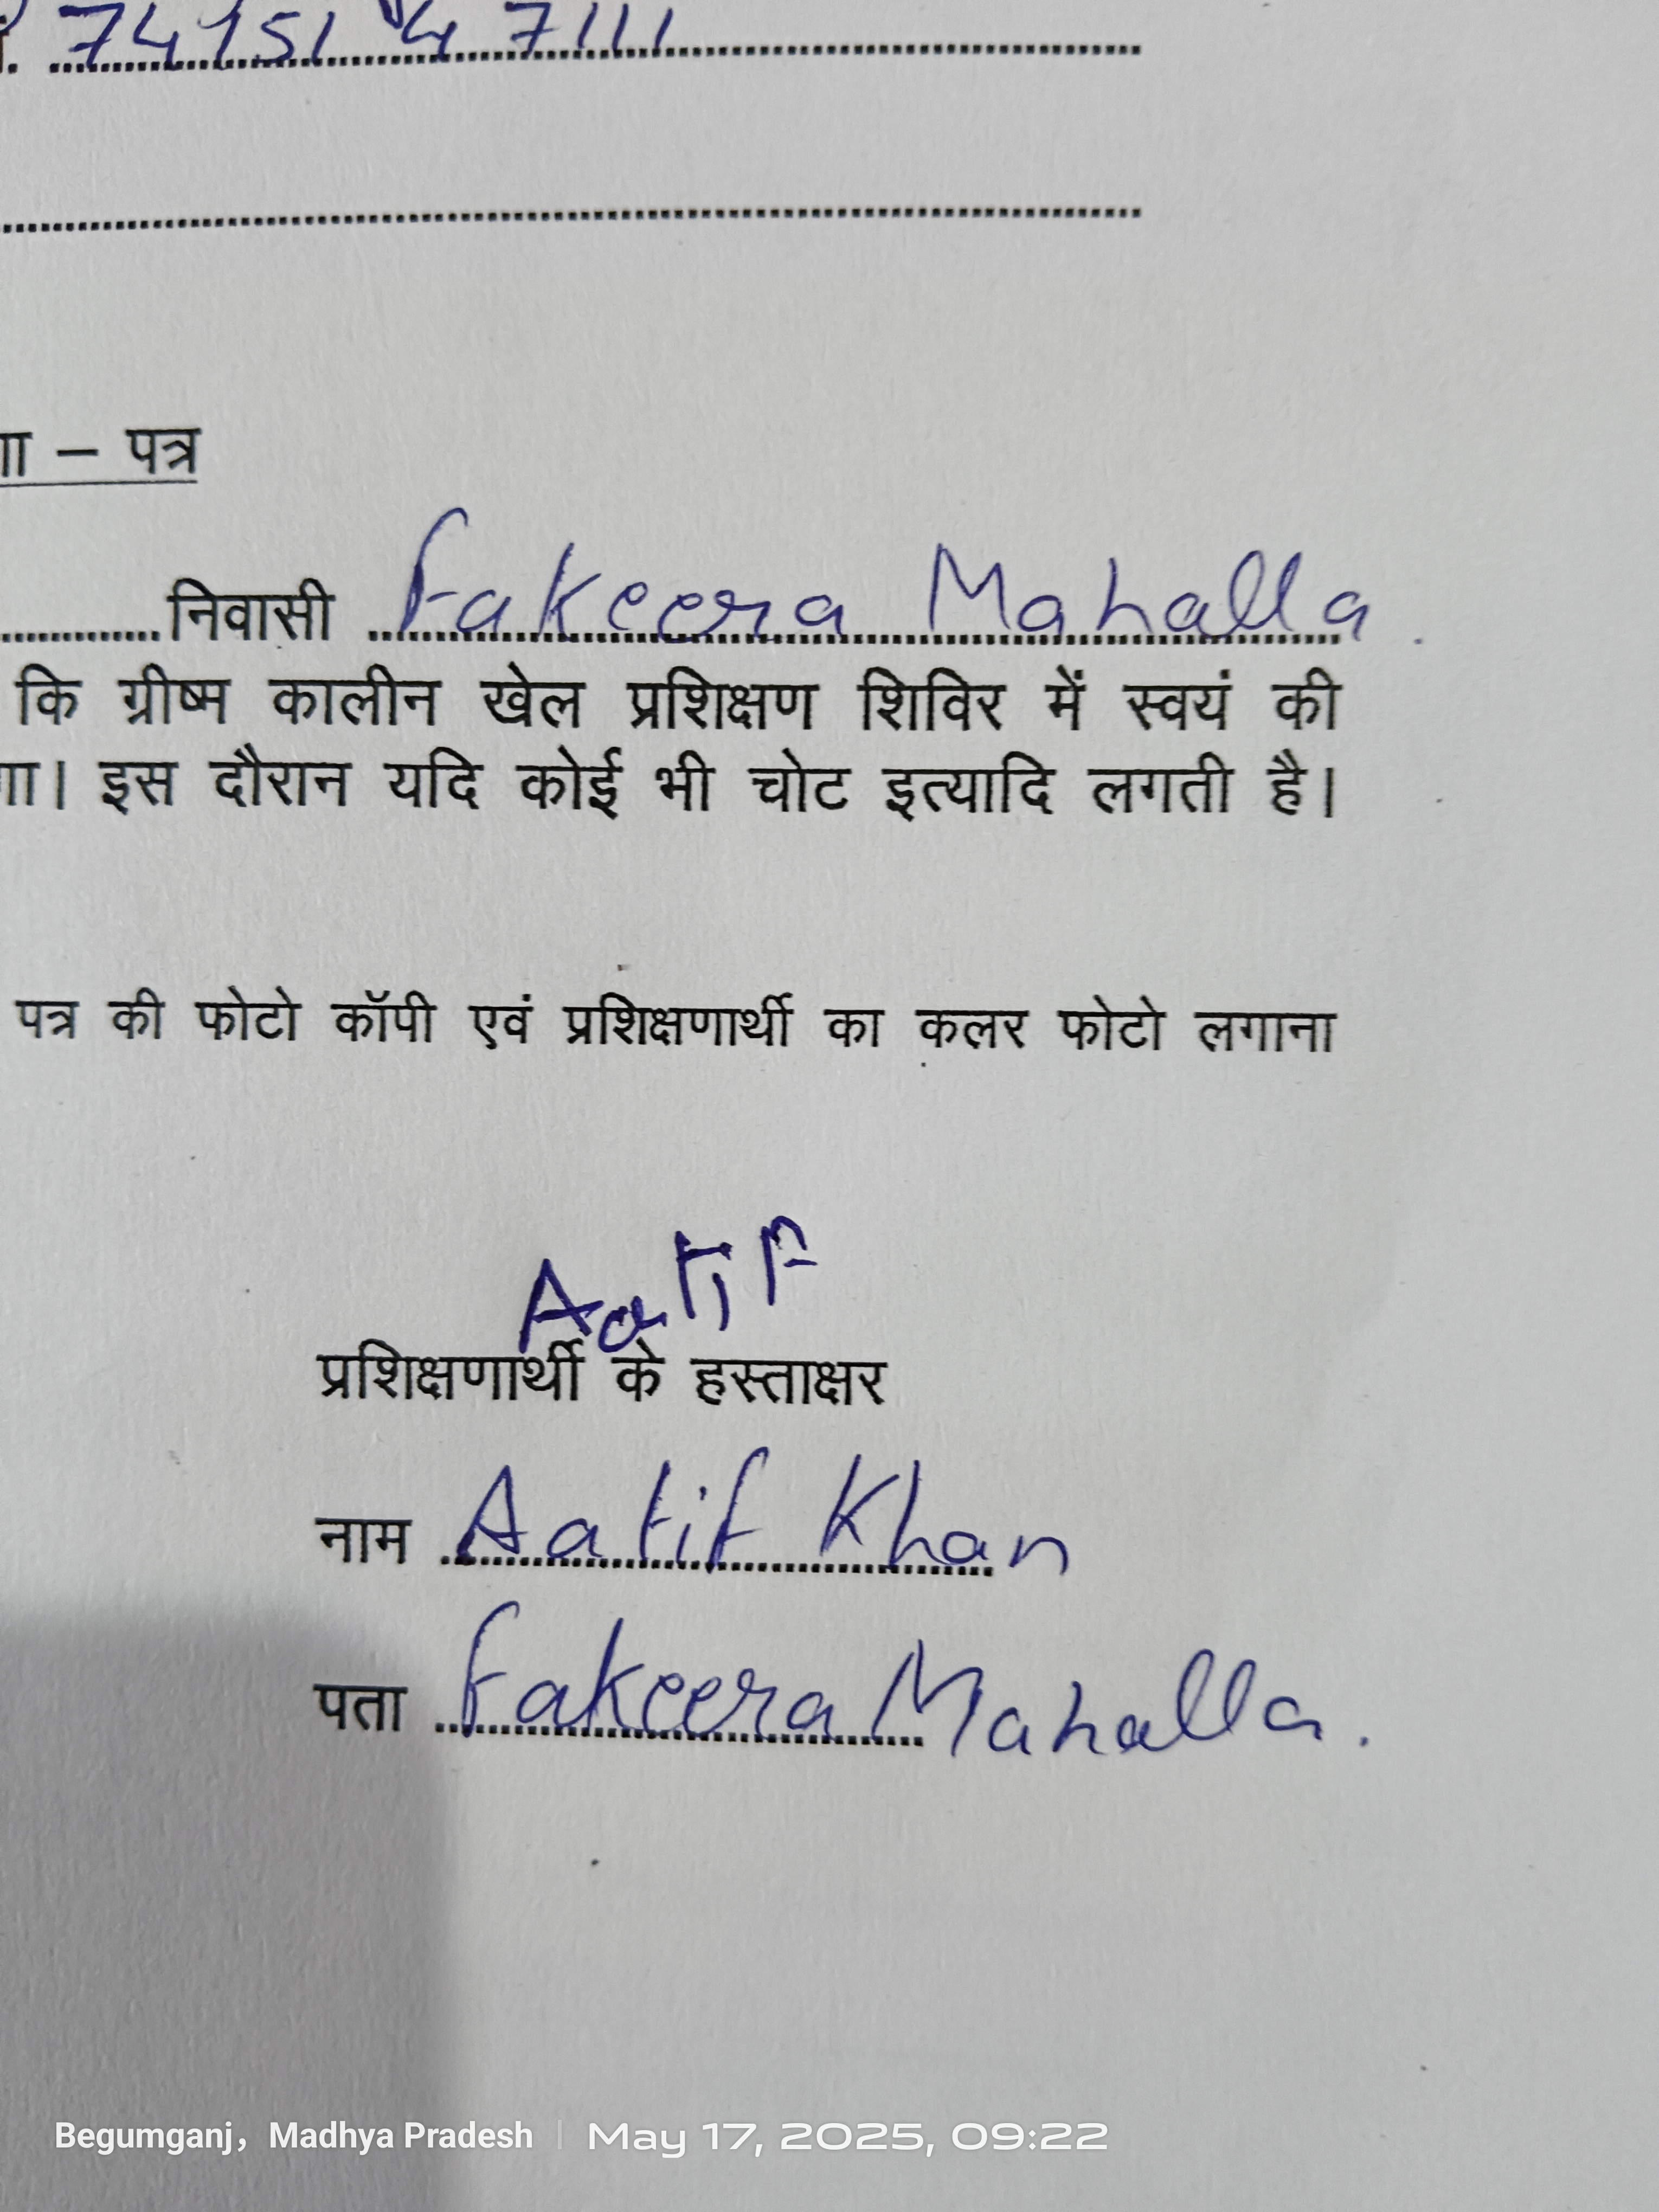 74151 4 7111
– पत्र
निवासी Fakeera Mahalla.
कि ग्रीष्म कालीन खेल प्रशिक्षण शिविर में स्वयं की
इस दौरान यदि कोई भी चोट इत्यादि लगती है।
पत्र की फोटो कॉपी एवं प्रशिक्षणार्थी का कलर फोटो लगाना
Aatif
प्रशिक्षणार्थी के हस्ताक्षर
नाम Aatif Khan
पता Fakeera Mahalla.
Begumganj, Madhya Pradesh | May 17, 2025, 09:22